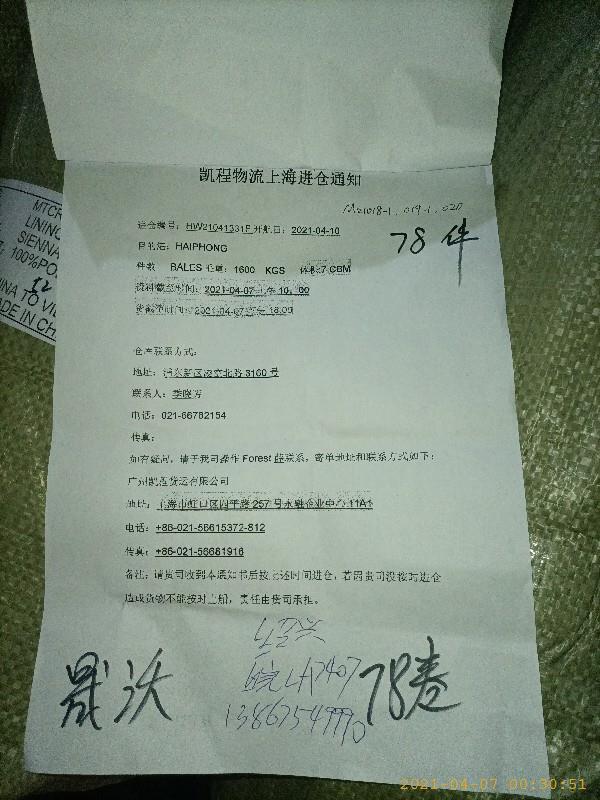 凯程物流上海进仓通知
M21018-1, 019-1, 020
进仓编号：HW21041331F 开航日：2021-04-10
78 件
目的港：HAIPHONG
件数 BALES 毛重：1600 KGS 体积:7 CBM
资料截至时间：2021-04-07 上午 10：00
货截至时间：2021-04-07 下午 18:00
仓库联系方式：
地址：浦东新区凌空北路 3160 号
联系人：李晓芳
电话：021-66782154
传真：
如有疑问，请于我司操作 Forest 薛联系，寄单地址和联系方式如下：
广州凯程货运有限公司
地址：上海市虹口区四平路 257 号永融企业中心 11A
电话：+86-021-56615372-812
传真：+86-021-56681916
备注：请贵司收到本通知书后按上述时间进仓，若因贵司没按时进仓
造成货物不能按时上船，责任由贵司承担。
绍兴
晟沃
皖LA7407
78卷
MTCR
LINING
SIENNA
100%PO
52
NA TO VI
ADE IN CH
2021-04-07 00:30:51